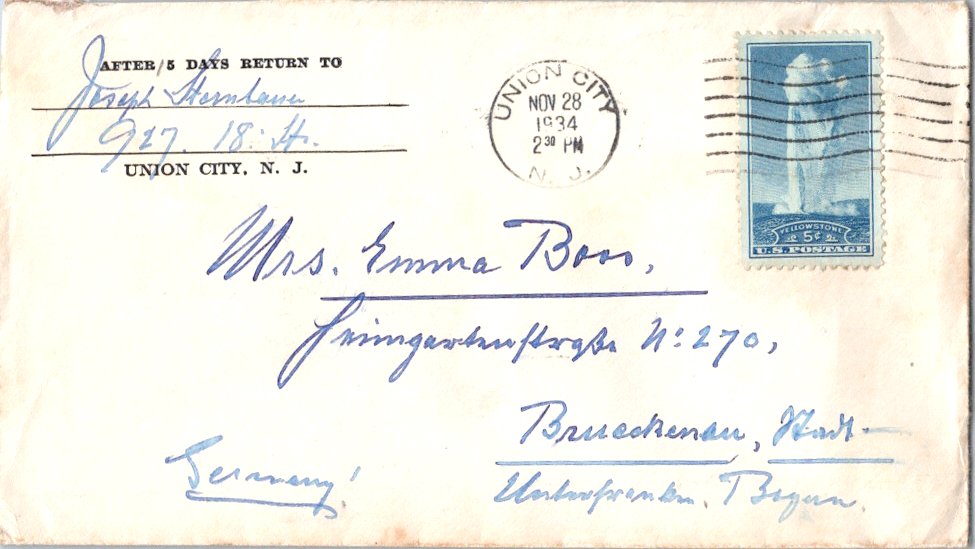 AFTER 5 DAYS RETURN TO
Joseph Sternbauer
927. 18. St.
UNION CITY, N. J.
UNION CITY
NOV 28
1934
2 30 PM
N. J.
YELLOWSTONE
5¢
U.S. POSTAGE
Mrs. Emma Boos,
Heimgartenstraße No: 270,
Brueckenau, Stadt-
Germany! Unterfranken. Bayern.